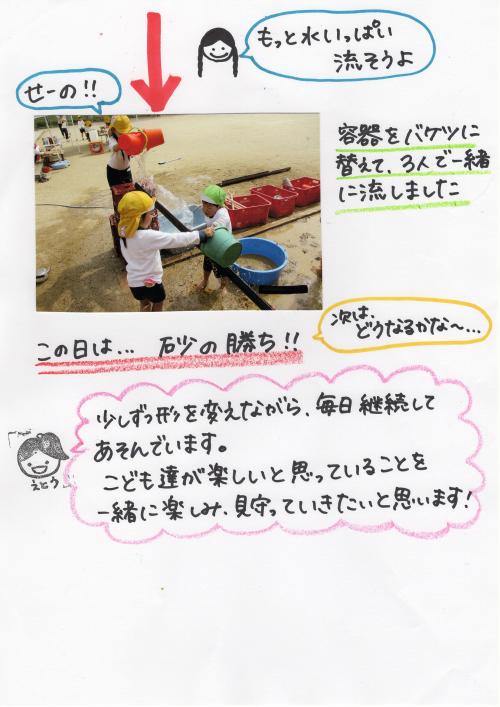 もっと水いっぱい
流そうよ
せーの!!
容器をバケツに
替えて、3人で一緒
に流しました
次は、
どうなるかな〜...
この日は... 砂の勝ち!!
少しずつ形を変えながら、毎日継続して
あそんでいます。
こども達が楽しいと思っていることを
一緒に楽しみ、見守っていきたいと思います!
えとう